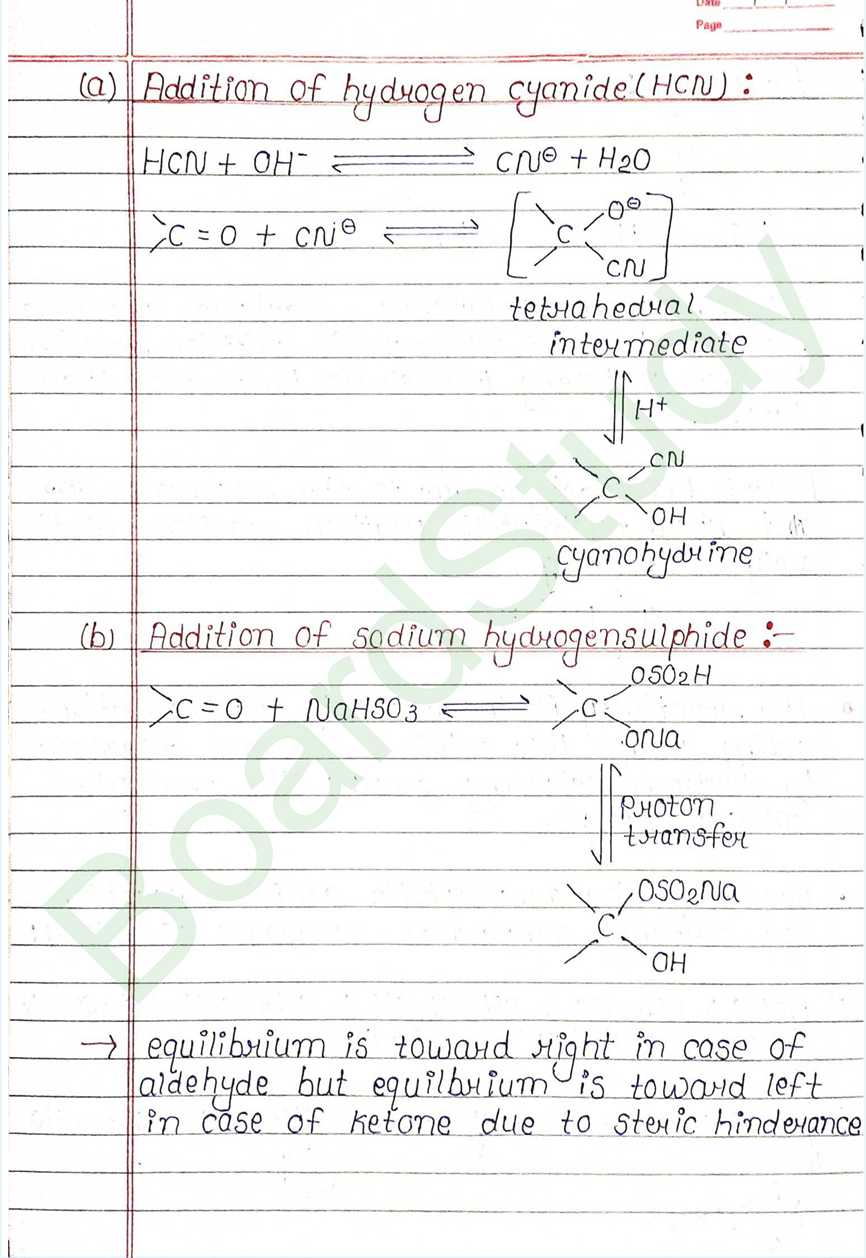 Date
Page
(a) Addition of hydrogen cyanide (HCN) :
HCN + OH⁻ ⇌ CN⊖ + H2O
C = O + CN⊖ ⇌ [ C O⊖ CN ]
tetrahedral
intermediate
H+
CN
C
OH
cyanohydrine
(b) Addition of sodium hydrogensulphide :-
OSO2H
C = O + NaHSO3 ⇌ C
ONa
Proton
transfer
OSO2Na
C
OH
→ equilibrium is toward right in case of
aldehyde but equilbrium is toward left
in case of ketone due to steric hinderance
BoardStudy